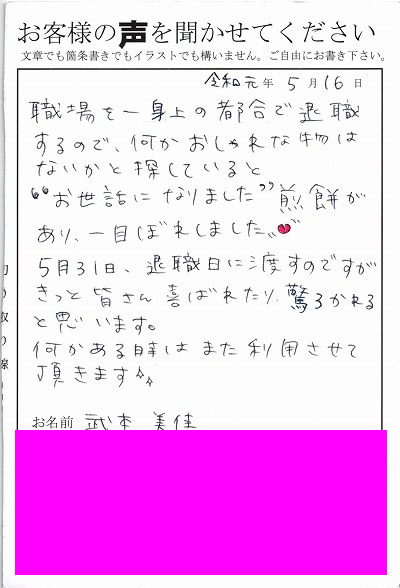 お客様の声を聞かせてください
文章でも箇条書きでもイラストでも構いません。ご自由にお書き下さい。
令和元年 5月16日
職場を一身上の都合で退職
するので、何かおしゃれな物は
ないかと探していると
“お世話になりました”煎餅が
あり、一目ぼれしました。
5月31日、退職日に渡すのですが
きっと皆さん喜ばれたり、驚ろかれる
と思います。
何かある時はまた利用させて
頂きます
お名前 武本 美佳
切り取り線